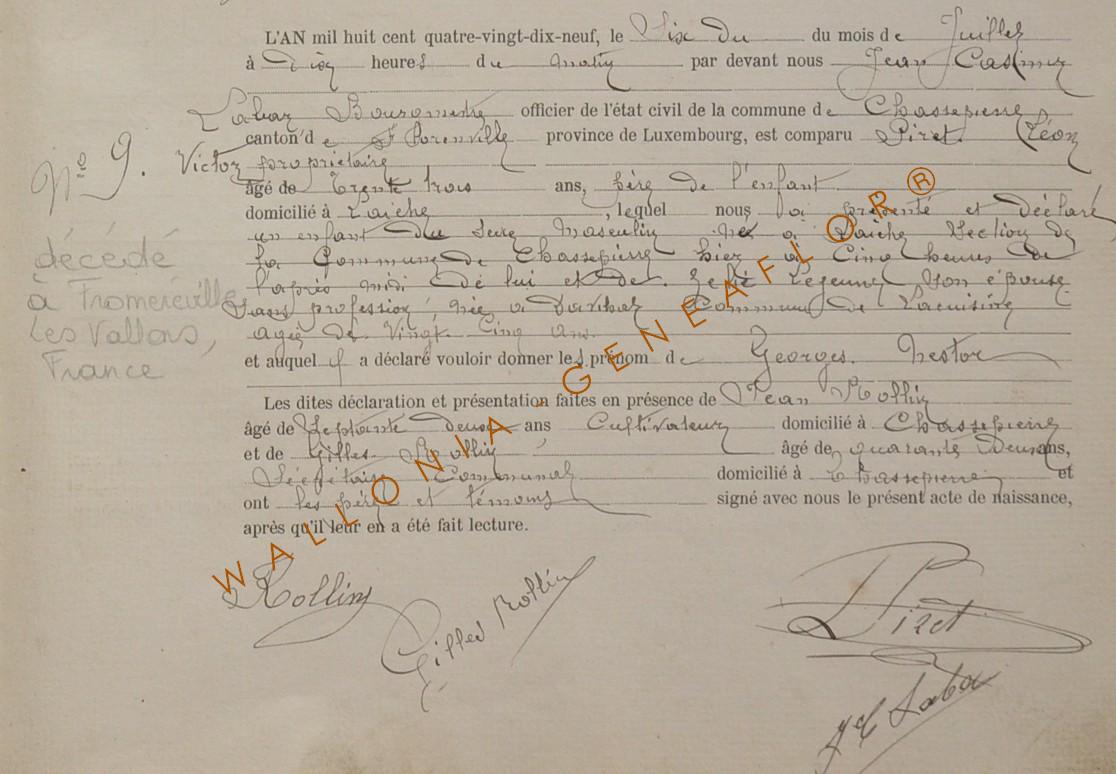 L'AN mil huit cent quatre-vingt-dix-neuf, le Six du du mois de Juillet
à Dix heures du matin par devant nous Jean Casimir
Labar Bourgmestre officier de l'état civil de la commune de Chassepierre
canton de Florenville province de Luxembourg, est comparu Piret Léon
N° 9. Victor propriétaire
âgé de Trente trois ans, père de l'enfant
domicilié à Laiche, lequel nous a présenté et déclaré
un enfant du sexe Masculin né à Laiche Section de
la Commune de Chassepierre hier à Cinq heures de
l'après midi de lui et de Lejeune, son épouse
sans profession, née à Commune de
agée de Vingt Cinq ans
et auquel il a déclaré vouloir donner les prénom de Georges. Nestor
Les dites déclaration et présentation faites en présence de Jean Rollin
âgé de Septante deux ans Cultivateur domicilié à Chassepierre
et de Gilles Rollin âgé de quarante Deux ans,
Secrétaire Communal domicilié à Chassepierre et
ont les père et témoins signé avec nous le présent acte de naissance,
après qu'il leur en a été fait lecture.
décédé
à Fromeréville
les Vallons,
France
WALLONIA - GENEAFLOR ®
Rollin
Gilles Rollin
Piret